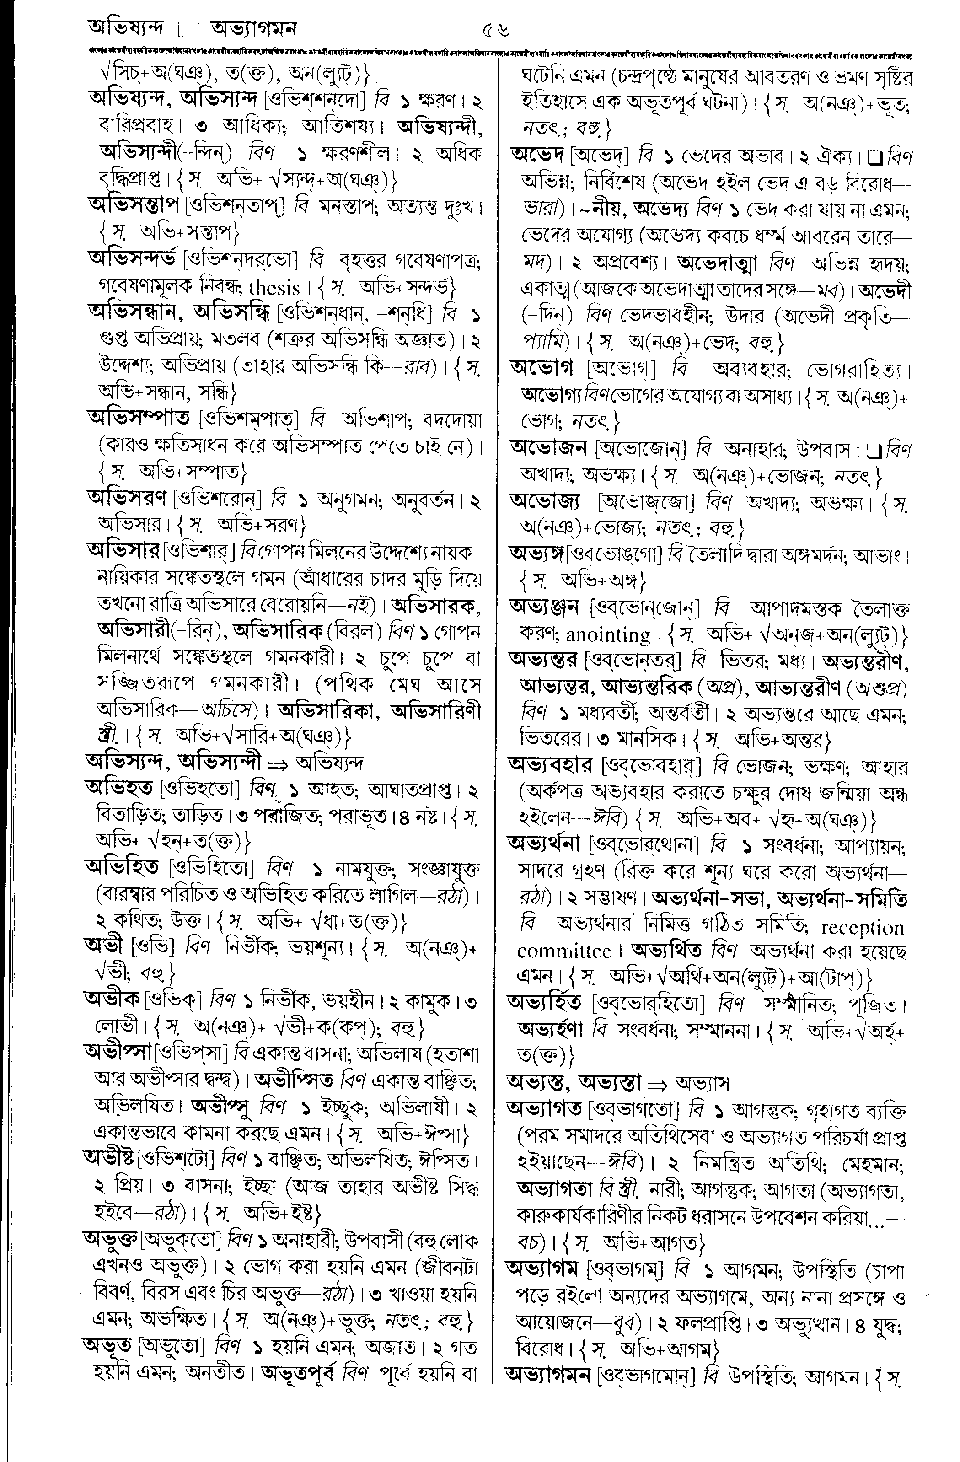 অভিষ্যন্দ । অভ্যাগমন ৫৬
√সিচ+অ(ঘঞ), ত(ক্ত), অন(ল্যুট)}
অভিষ্যন্দ, অভিস্যন্দ [ওভিশ্‌শন্‌দো] বি ১ ক্ষরণ। ২
বারিপ্রবাহ। ৩ আধিক্য; আতিশয্য। অভিষ্যন্দী,
অভিস্যন্দী(-ন্দিন্) বিণ ১ ক্ষরণশীল। ২ অধিক
বৃদ্ধিপ্রাপ্ত। {স. অভি+ √স্যন্দ্+অ(ঘঞ)}
অভিসন্তাপ [ওভিশন্‌তাপ্] বি মনস্তাপ; অত্যন্ত দুঃখ।
{স. অভি+সন্তাপ}
অভিসন্দর্ভ [ওভিশন্‌দর্‌ভো] বি বৃহত্তর গবেষণাপত্র;
গবেষণামূলক নিবন্ধ; thesis। {স. অভি+সন্দর্ভ}
অভিসন্ধান, অভিসন্ধি [ওভিশন্‌ধান্, -শন্‌ধি] বি ১
গুপ্ত অভিপ্রায়; মতলব (শত্রুর অভিসন্ধি অজ্ঞাত)। ২
উদ্দেশ্য; অভিপ্রায় (তাহার অভিসন্ধি কি--রাব)। {স.
অভি+সন্ধান, সন্ধি}
অভিসম্পাত [ওভিশম্‌পাত্] বি অভিশাপ; বদদোয়া
(কারও ক্ষতিসাধন করে অভিসম্পাত পেতে চাই নে)।
{স. অভি+সম্পাত}
অভিসরণ [ওভিশরোন্] বি ১ অনুগমন; অনুবর্তন। ২
অভিসার। {স. অভি+সরণ}
অভিসার [ওভিশার্] বি গোপন মিলনের উদ্দেশ্যে নায়ক
নায়িকার সঙ্কেতস্থলে গমন (আঁধারের চাদর মুড়ি দিয়ে
তখনো রাত্রি অভিসারে বেরোয়নি—নই)। অভিসারক,
অভিসারী(-রিন্), অভিসারিক (বিরল) বিণ ১ গোপন
মিলনার্থে সঙ্কেতস্থলে গমনকারী। ২ চুপে চুপে বা
সজ্জিতরূপে গমনকারী। (পথিক মেঘ আসে
অভিসারিক—অচিসে)। অভিসারিকা, অভিসারিণী
স্ত্রী.। {স. অভি+√সারি+অ(ঘঞ)}
অভিস্যন্দ, অভিস্যন্দী ⇒ অভিষ্যন্দ
অভিহত [ওভিহতো] বিণ ১ আহত; আঘাতপ্রাপ্ত। ২
বিতাড়িত; তাড়িত। ৩ পরাজিত; পরাভূত। ৪ নষ্ট। {স.
অভি+ √হন্+ত(ক্ত)}
অভিহিত [ওভিহিতো] বিণ ১ নামযুক্ত; সংজ্ঞাযুক্ত
(বারম্বার পরিচিত ও অভিহিত করিতে লাগিল—রঠা)।
২ কথিত; উক্ত। {স. অভি+ √ধা+ত(ক্ত)}
অভী [ওভি] বিণ নির্ভীক; ভয়শূন্য। {স. অ(নঞ)+
√ভী; বহু}
অভীক [ওভিক্] বিণ ১ নির্ভীক, ভয়হীন। ২ কামুক। ৩
লোভী। {স. অ(নঞ)+ √ভী+ক(কপ্); বহু}
অভীপ্সা [ওভিপ্‌সা] বি একান্ত বাসনা; অভিলাষ (হতাশা
আর অভীপ্সার দ্বন্দ্ব)। অভীপ্সিত বিণ একান্ত বাঞ্ছিত;
অভিলষিত। অভীপ্সু বিণ ১ ইচ্ছুক; অভিলাষী। ২
একান্তভাবে কামনা করছে এমন। {স. অভি+ঈপ্সা}
অভীষ্ট [ওভিশ্‌টো] বিণ ১ বাঞ্ছিত; অভিলষিত; ঈপ্সিত।
২ প্রিয়। ৩ বাসনা; ইচ্ছা (আজ তাহার অভীষ্ট সিদ্ধ
হইবে—রঠা)। {স. অভি+ইষ্ট}
অভুক্ত [অভুক্‌তো] বিণ ১ অনাহারী; উপবাসী (বহু লোক
এখনও অভুক্ত)। ২ ভোগ করা হয়নি এমন (জীবনটা
বিবর্ণ, বিরস এবং চির অভুক্ত—রঠা)। ৩ খাওয়া হয়নি
এমন; অভক্ষিত। {স. অ(নঞ)+ভুক্ত; নতৎ.; বহু}
অভূত [অভুতো] বিণ ১ হয়নি এমন; অজাত। ২ গত
হয়নি এমন; অনতীত। অভূতপূর্ব বিণ পূর্বে হয়নি বা
ঘটেনি এমন (চন্দ্রপৃষ্ঠে মানুষের অবতরণ ও ভ্রমণ সৃষ্টির
ইতিহাসে এক অভূতপূর্ব ঘটনা)। {স. অ(নঞ)+ভূত;
নতৎ.; বহু}
অভেদ [অভেদ্] বি ১ ভেদের অভাব। ২ ঐক্য। ❑ বিণ
অভিন্ন; নির্বিশেষ (অভেদ হইল ভেদ এ বড় বিরোধ—
ভারা)। ~নীয়, অভেদ্য বিণ ১ ভেদ করা যায় না এমন;
ভেদের অযোগ্য (অভেদ্য কবচে ধর্ম্ম আবরেন তারে—
মদ)। ২ অপ্রবেশ্য। অভেদাত্মা বিণ অভিন্ন হৃদয়;
একাত্ম (আজকে অভেদাত্মা তাদের সঙ্গে—মব)। অভেদী
(-দিন) বিণ ভেদভাবহীন; উদার (অভেদী প্রকৃতি—
প্যামি)। {স. অ(নঞ)+ভেদ; বহু}
অভোগ [অভোগ্] বি অব্যবহার; ভোগরাহিত্য।
অভোগ্য বিণ ভোগের অযোগ্য বা অসাধ্য। {স. অ(নঞ)+
ভোগ; নতৎ}
অভোজন [অভোজোন্] বি অনাহার; উপবাস। ❑ বিণ
অখাদ্য; অভক্ষ্য। {স. অ(নঞ)+ভোজন; নতৎ}
অভোজ্য [অভোজ্‌জো] বিণ অখাদ্য; অভক্ষ্য। {স.
অ(নঞ)+ভোজ্য; নতৎ.; বহু}
অভ্যঙ্গ [ওব্‌ভোঙ্‌গো] বি তৈলাদি দ্বারা অঙ্গমর্দন; আভাং।
{স. অভি+অঙ্গ}
অভ্যঞ্জন [ওব্‌ভোন্‌জোন্] বি আপাদমস্তক তৈলাক্ত
করণ; anointing. {স. অভি+ √অন্‌জ্+অন(ল্যুট)}
অভ্যন্তর [ওব্‌ভোন্‌তর্] বি ভিতর; মধ্য। অভ্যন্তরীণ,
আভ্যন্তর, আভ্যন্তরিক (অপ্র), আভ্যন্তরীণ (অশুপ্র)
বিণ ১ মধ্যবর্তী; অন্তর্বর্তী। ২ অভ্যন্তরে আছে এমন;
ভিতরের। ৩ মানসিক। {স. অভি+অন্তর}
অভ্যবহার [ওব্‌ভোবহার্] বি ভোজন; ভক্ষণ; আহার
(অর্কপত্র অভ্যবহার করাতে চক্ষুর দোষ জন্মিয়া অন্ধ
হইলেন--ঈবি) {স. অভি+অব+ √হৃ+অ(ঘঞ)}
অভ্যর্থনা [ওব্‌ভোর্‌থোনা] বি ১ সংবর্ধনা; আপ্যায়ন;
সাদরে গ্রহণ (রিক্ত করে শূন্য ঘরে করো অভ্যর্থনা—
রঠা)। ২ সম্ভাষণ। অভ্যর্থনা-সভা, অভ্যর্থনা-সমিতি
বি অভ্যর্থনার নিমিত্ত গঠিত সমিতি; reception
committee। অভ্যর্থিত বিণ অভ্যর্থনা করা হয়েছে
এমন। {স. অভি+√অর্থি+অন(ল্যুট)+আ(টাপ্)}
অভ্যর্হিত [ওব্‌ভোর্‌হিতো] বিণ সম্মানিত; পূজিত।
অভ্যর্হণা বি সংবর্ধনা; সম্মাননা। {স. অভি+√অর্হ্+
ত(ক্ত)}
অভ্যস্ত, অভ্যস্তা ⇒ অভ্যাস
অভ্যাগত [ওব্‌ভাগতো] বি ১ আগন্তুক; গৃহাগত ব্যক্তি
(পরম সমাদরে অতিথিসেবা ও অভ্যাগত পরিচর্যা প্রাপ্ত
হইয়াছেন--ঈবি)। ২ নিমন্ত্রিত অতিথি; মেহমান;
অভ্যাগতা বি স্ত্রী. নারী; আগন্তুক; আগতা (অভ্যাগতা,
কারুকার্যকারিণীর নিকট ধরাসনে উপবেশন করিয়া...—
বচ)। {স. অভি+আগত}
অভ্যাগম [ওব্‌ভাগম্] বি ১ আগমন; উপস্থিতি (চাপা
পড়ে রইলো অন্যদের অভ্যাগমে, অন্য নানা প্রসঙ্গে ও
আয়োজনে—বুব)। ২ ফলপ্রাপ্তি। ৩ অভ্যুত্থান। ৪ যুদ্ধ;
বিরোধ। {স. অভি+আগম}
অভ্যাগমন [ওব্‌ভাগমোন্] বি উপস্থিতি; আগমন। {স.